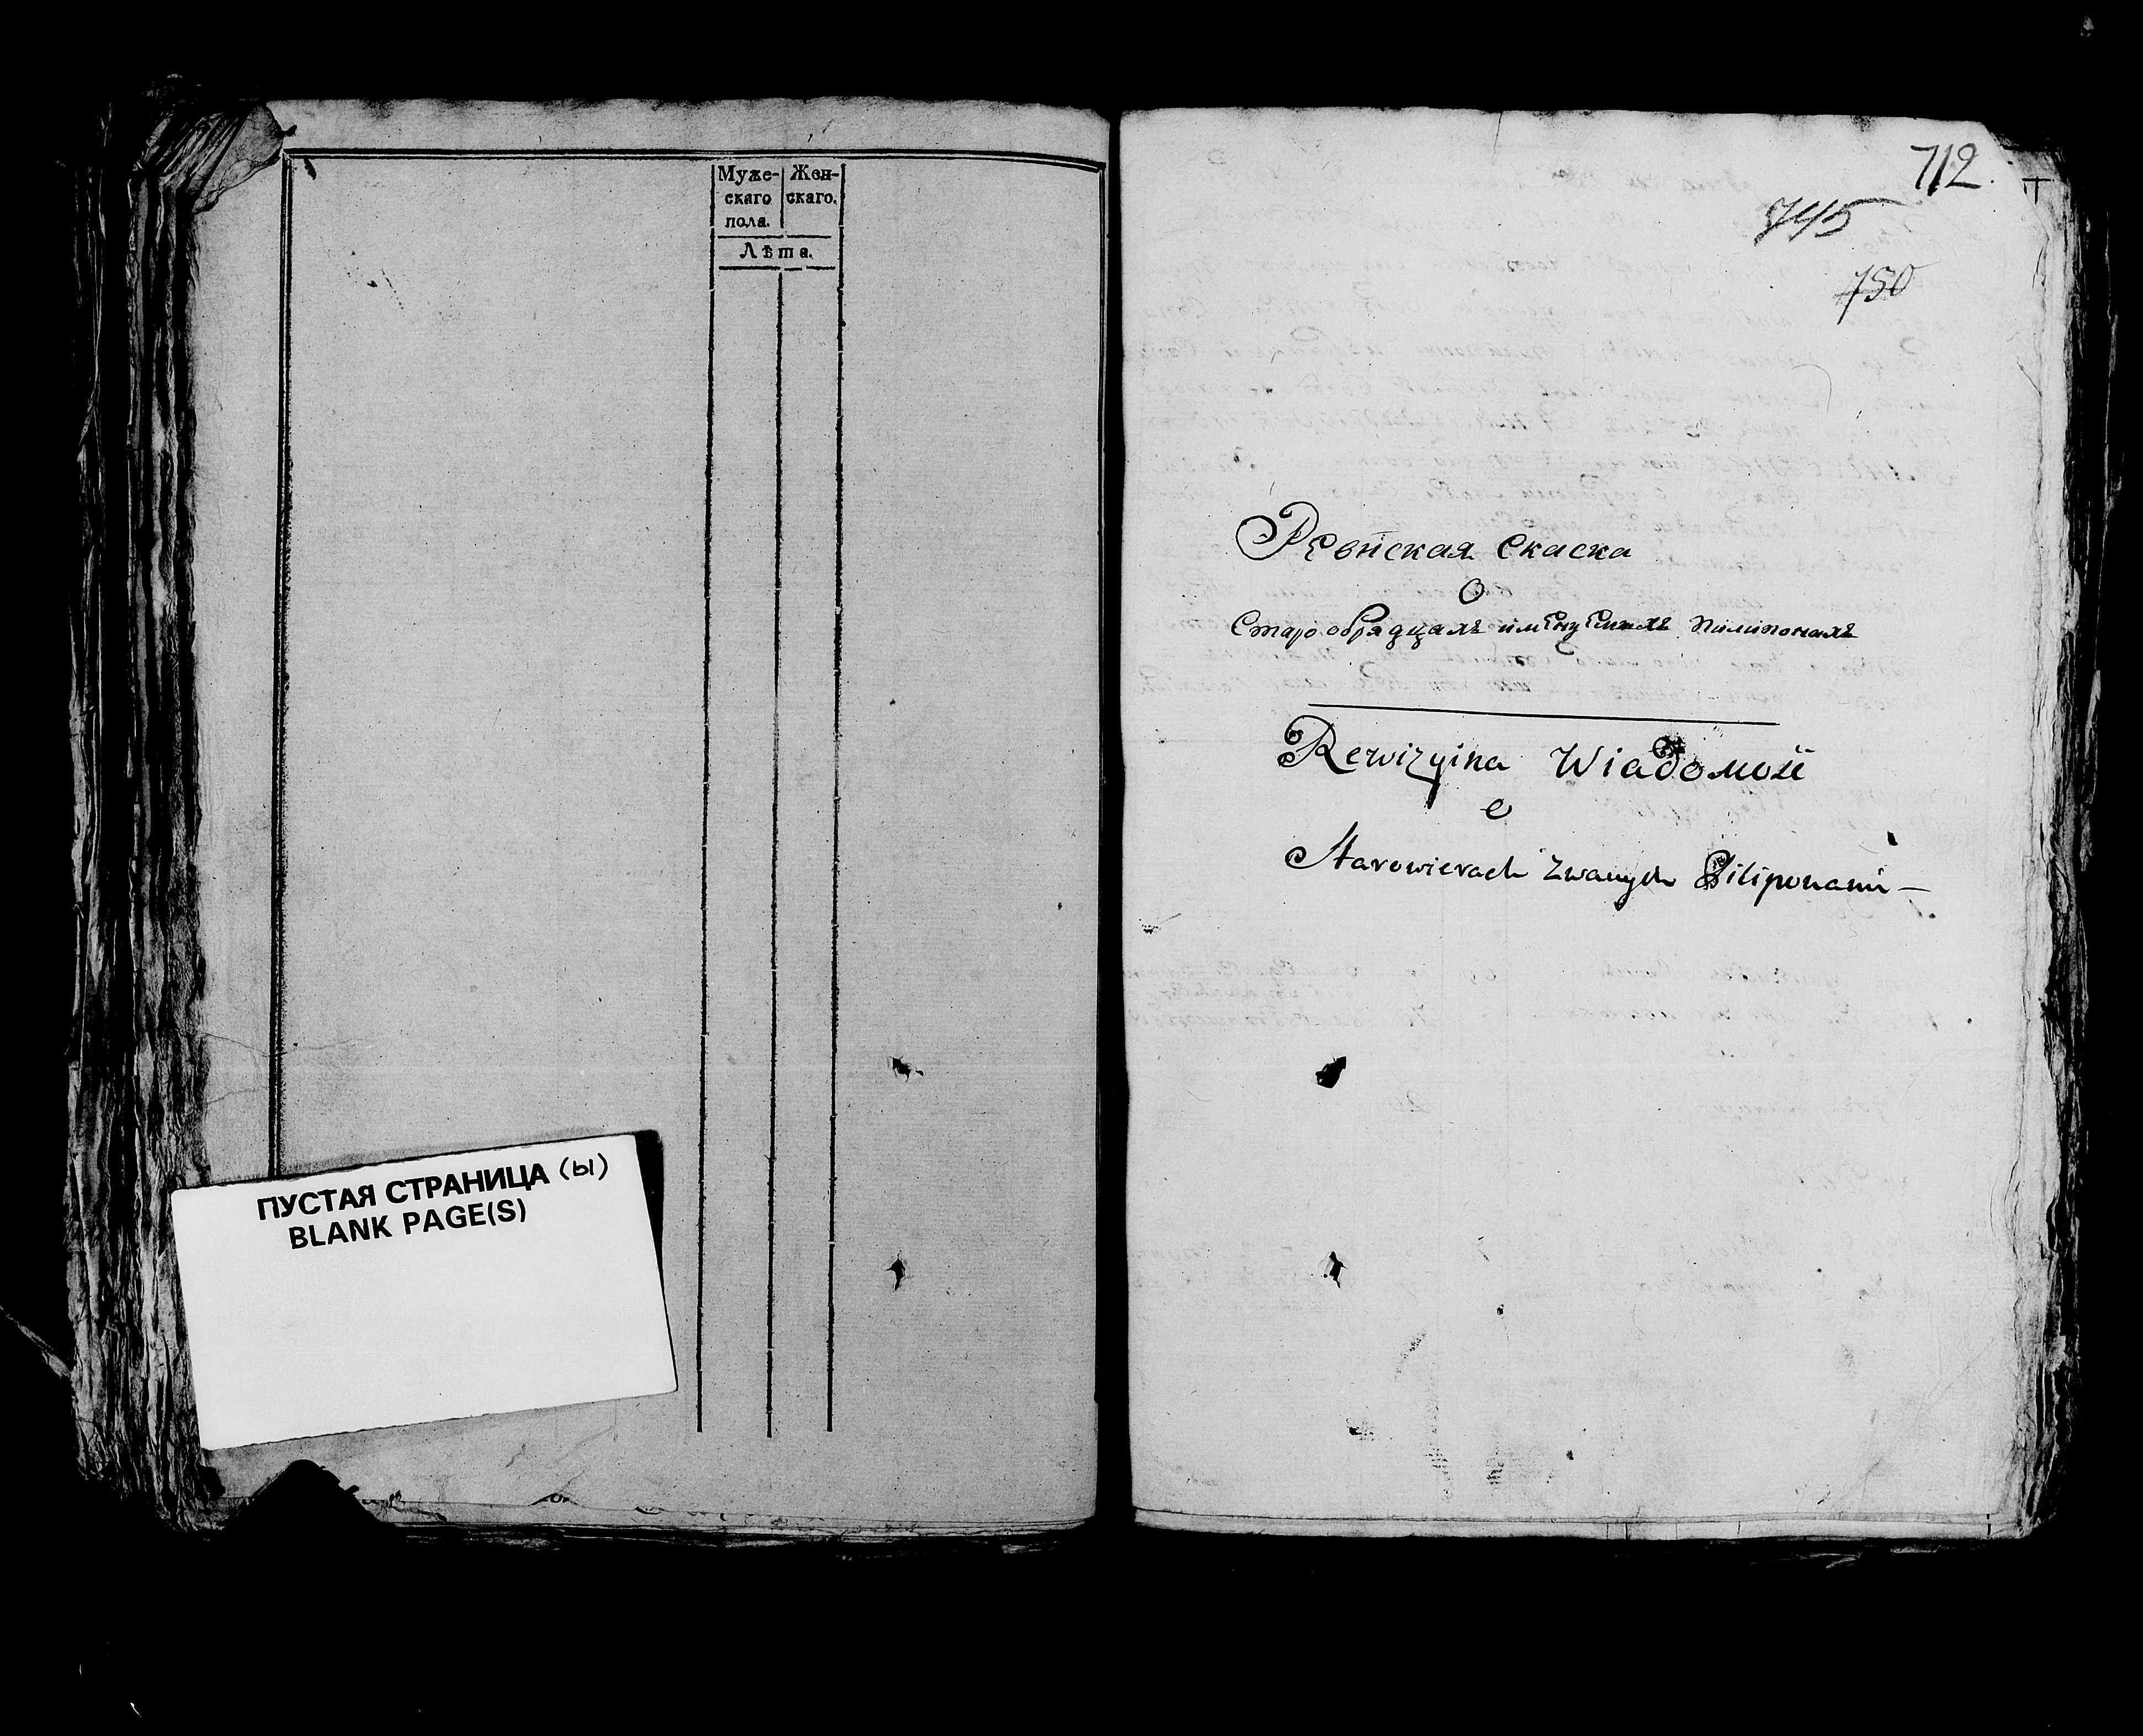 Муже- Жен-
скаго скаго.
пола.
Лѣта.
ПУСТАЯ СТРАНИЦА (ы)
BLANK PAGE(S)
712.
745
750
Ревиская скаска
О
Старообрядцахъ именуемыхъ Пилипонахъ
Rewizyina Wiadomość
o
Starowierach zwanych Filiponami —